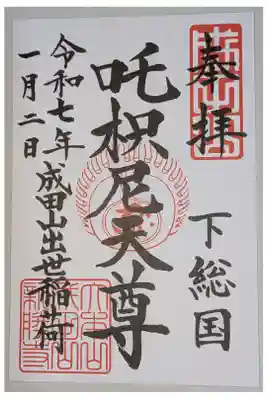 奉拝
下総国
吒枳尼天尊
成田山出世稲荷
令和七年
一月二日